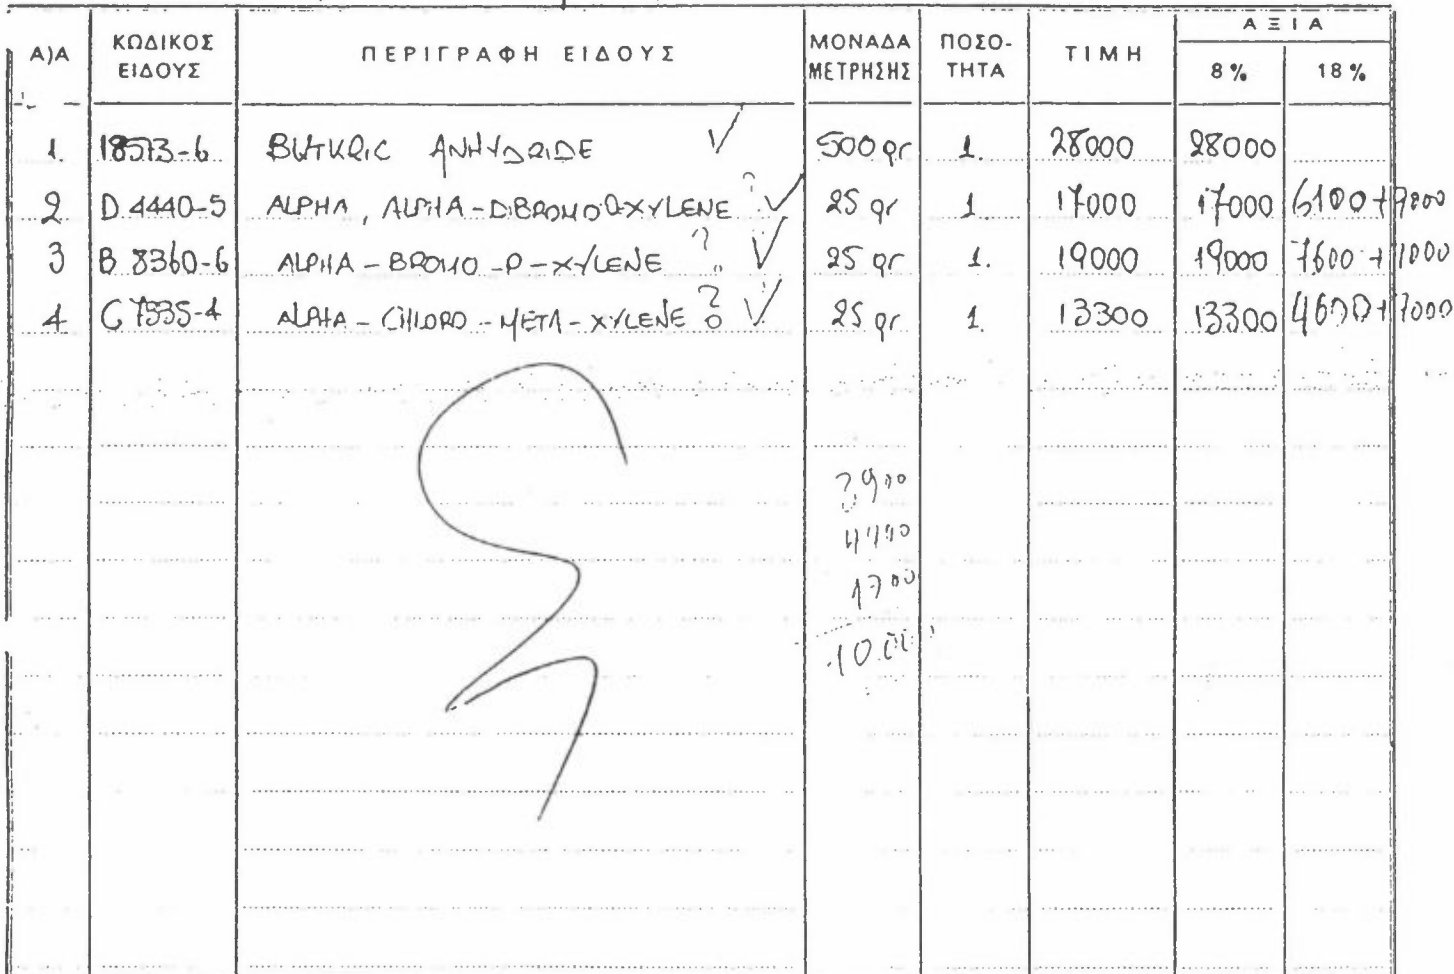 Α)Α ΚΩΔΙΚΟΣ ΕΙΔΟΥΣ ΠΕΡΙΓΡΑΦΗ ΕΙΔΟΥΣ ΜΟΝΑΔΑ ΜΕΤΡΗΣΗΣ ΠΟΣΟ-ΤΗΤΑ ΤΙΜΗ ΑΞΙΑ
8% 18%
1. 18513-6 BUTYRIC ANHYDRIDE ✓ 500 gr 1. 28000 28000
2 D 4440-5 ALPHA, ALPHA-DIBROMO-O-XYLENE ? ✓ 25 gr 1 17000 17000 6100 + 9800
3 B 8360-6 ALPHA-BROMO-O-XYLENE ? ✓ 25 gr 1. 19000 19000 7600 + 7000
4 C 7535-4 ALPHA-CHLORO-META-XYLENE ? ✓ 25 gr 1. 13300 13300 4600 + 7000
3900
1700